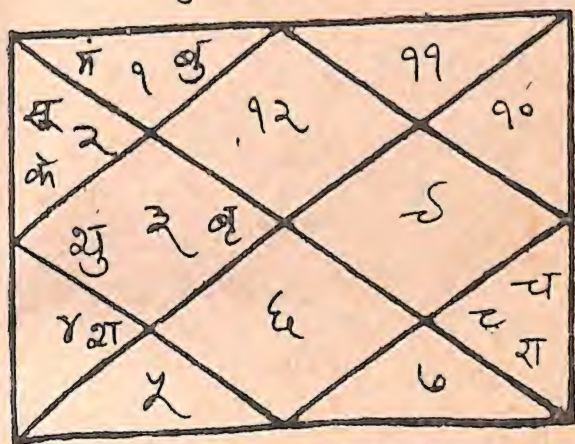 मं १ बु
११
सू २
के
१२
१०
शु ३ बृ
९
४ श
६
च
८
रा
५
७